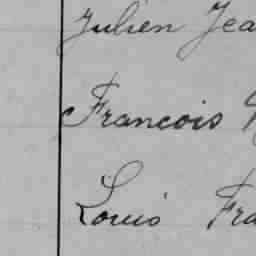 Julien Jea
Francois
Louis Fra